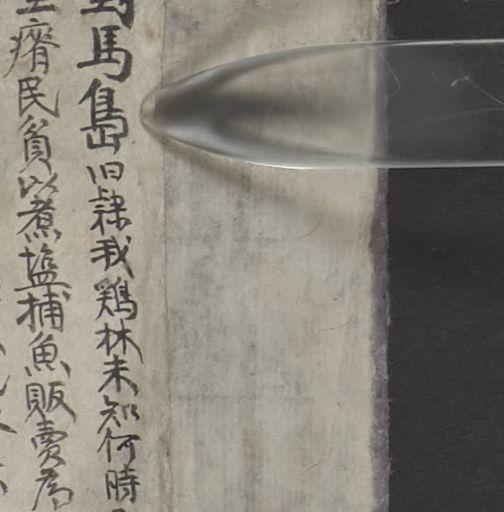 對馬島旧隷我鶏林未知何時
瘠民貧以煮塩捕魚販賣為